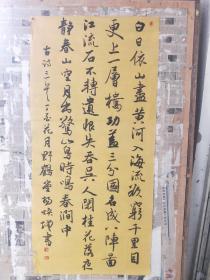 白日依山盡黄河入海流欲窮千里目
更上一層樓功蓋三分國名成八陣圖
江流石不轉遺恨失吞吴人閑桂花落夜
靜春山空月出驚山鳥時鳴春澗中
古詩三首丁亥花月野鶴
書